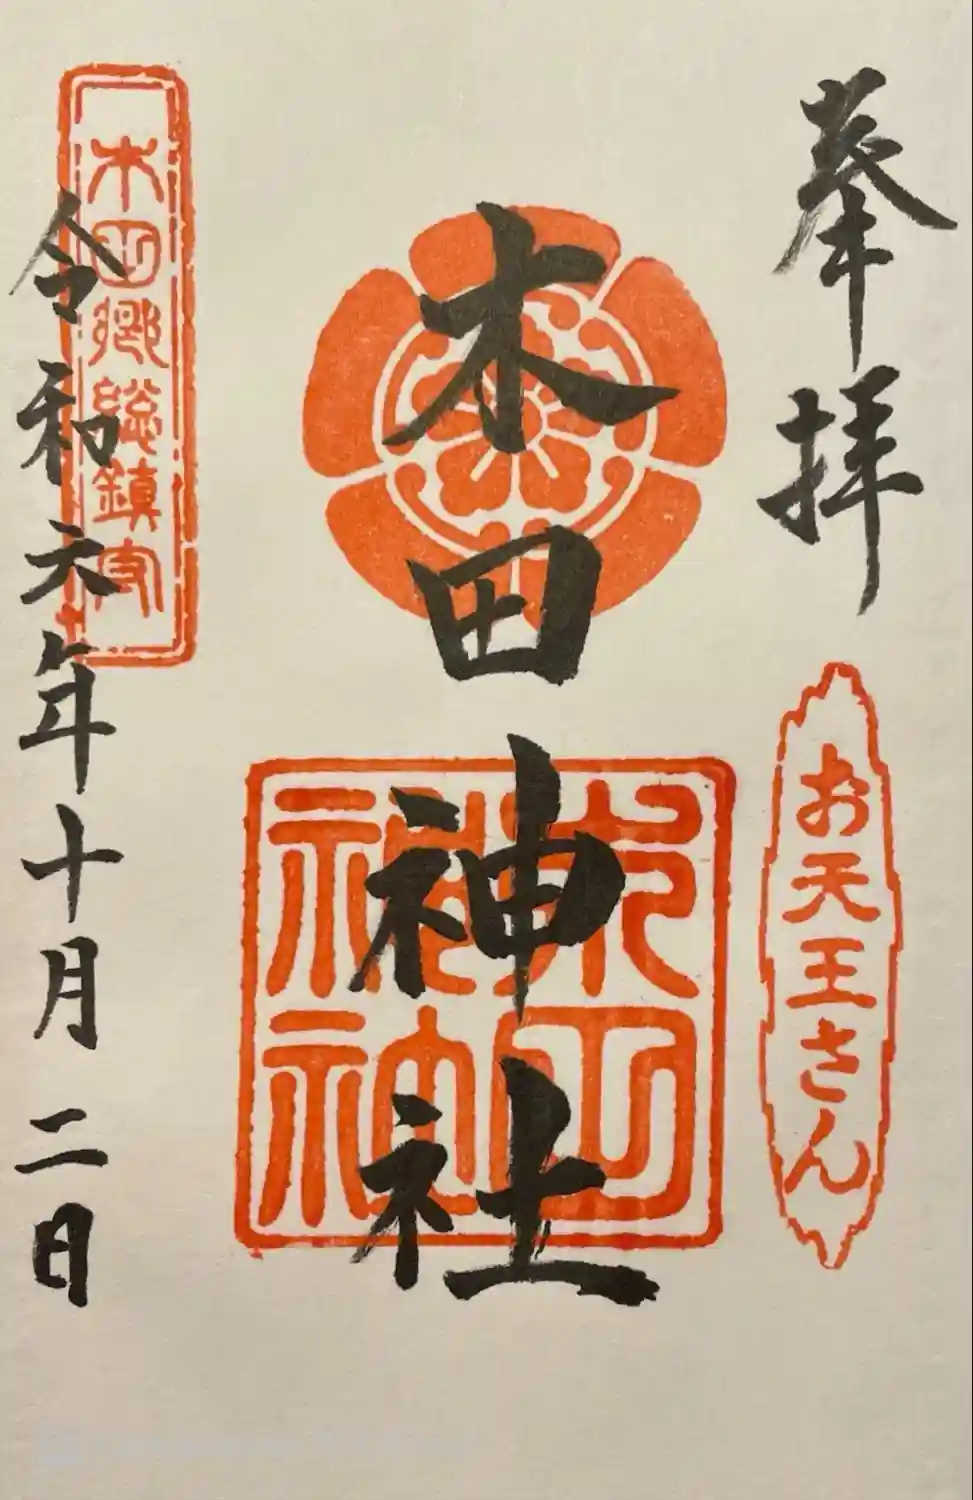 奉拝
お天王さん
木田神社
木田神社
木田郷総鎮守
令和六年十月二日